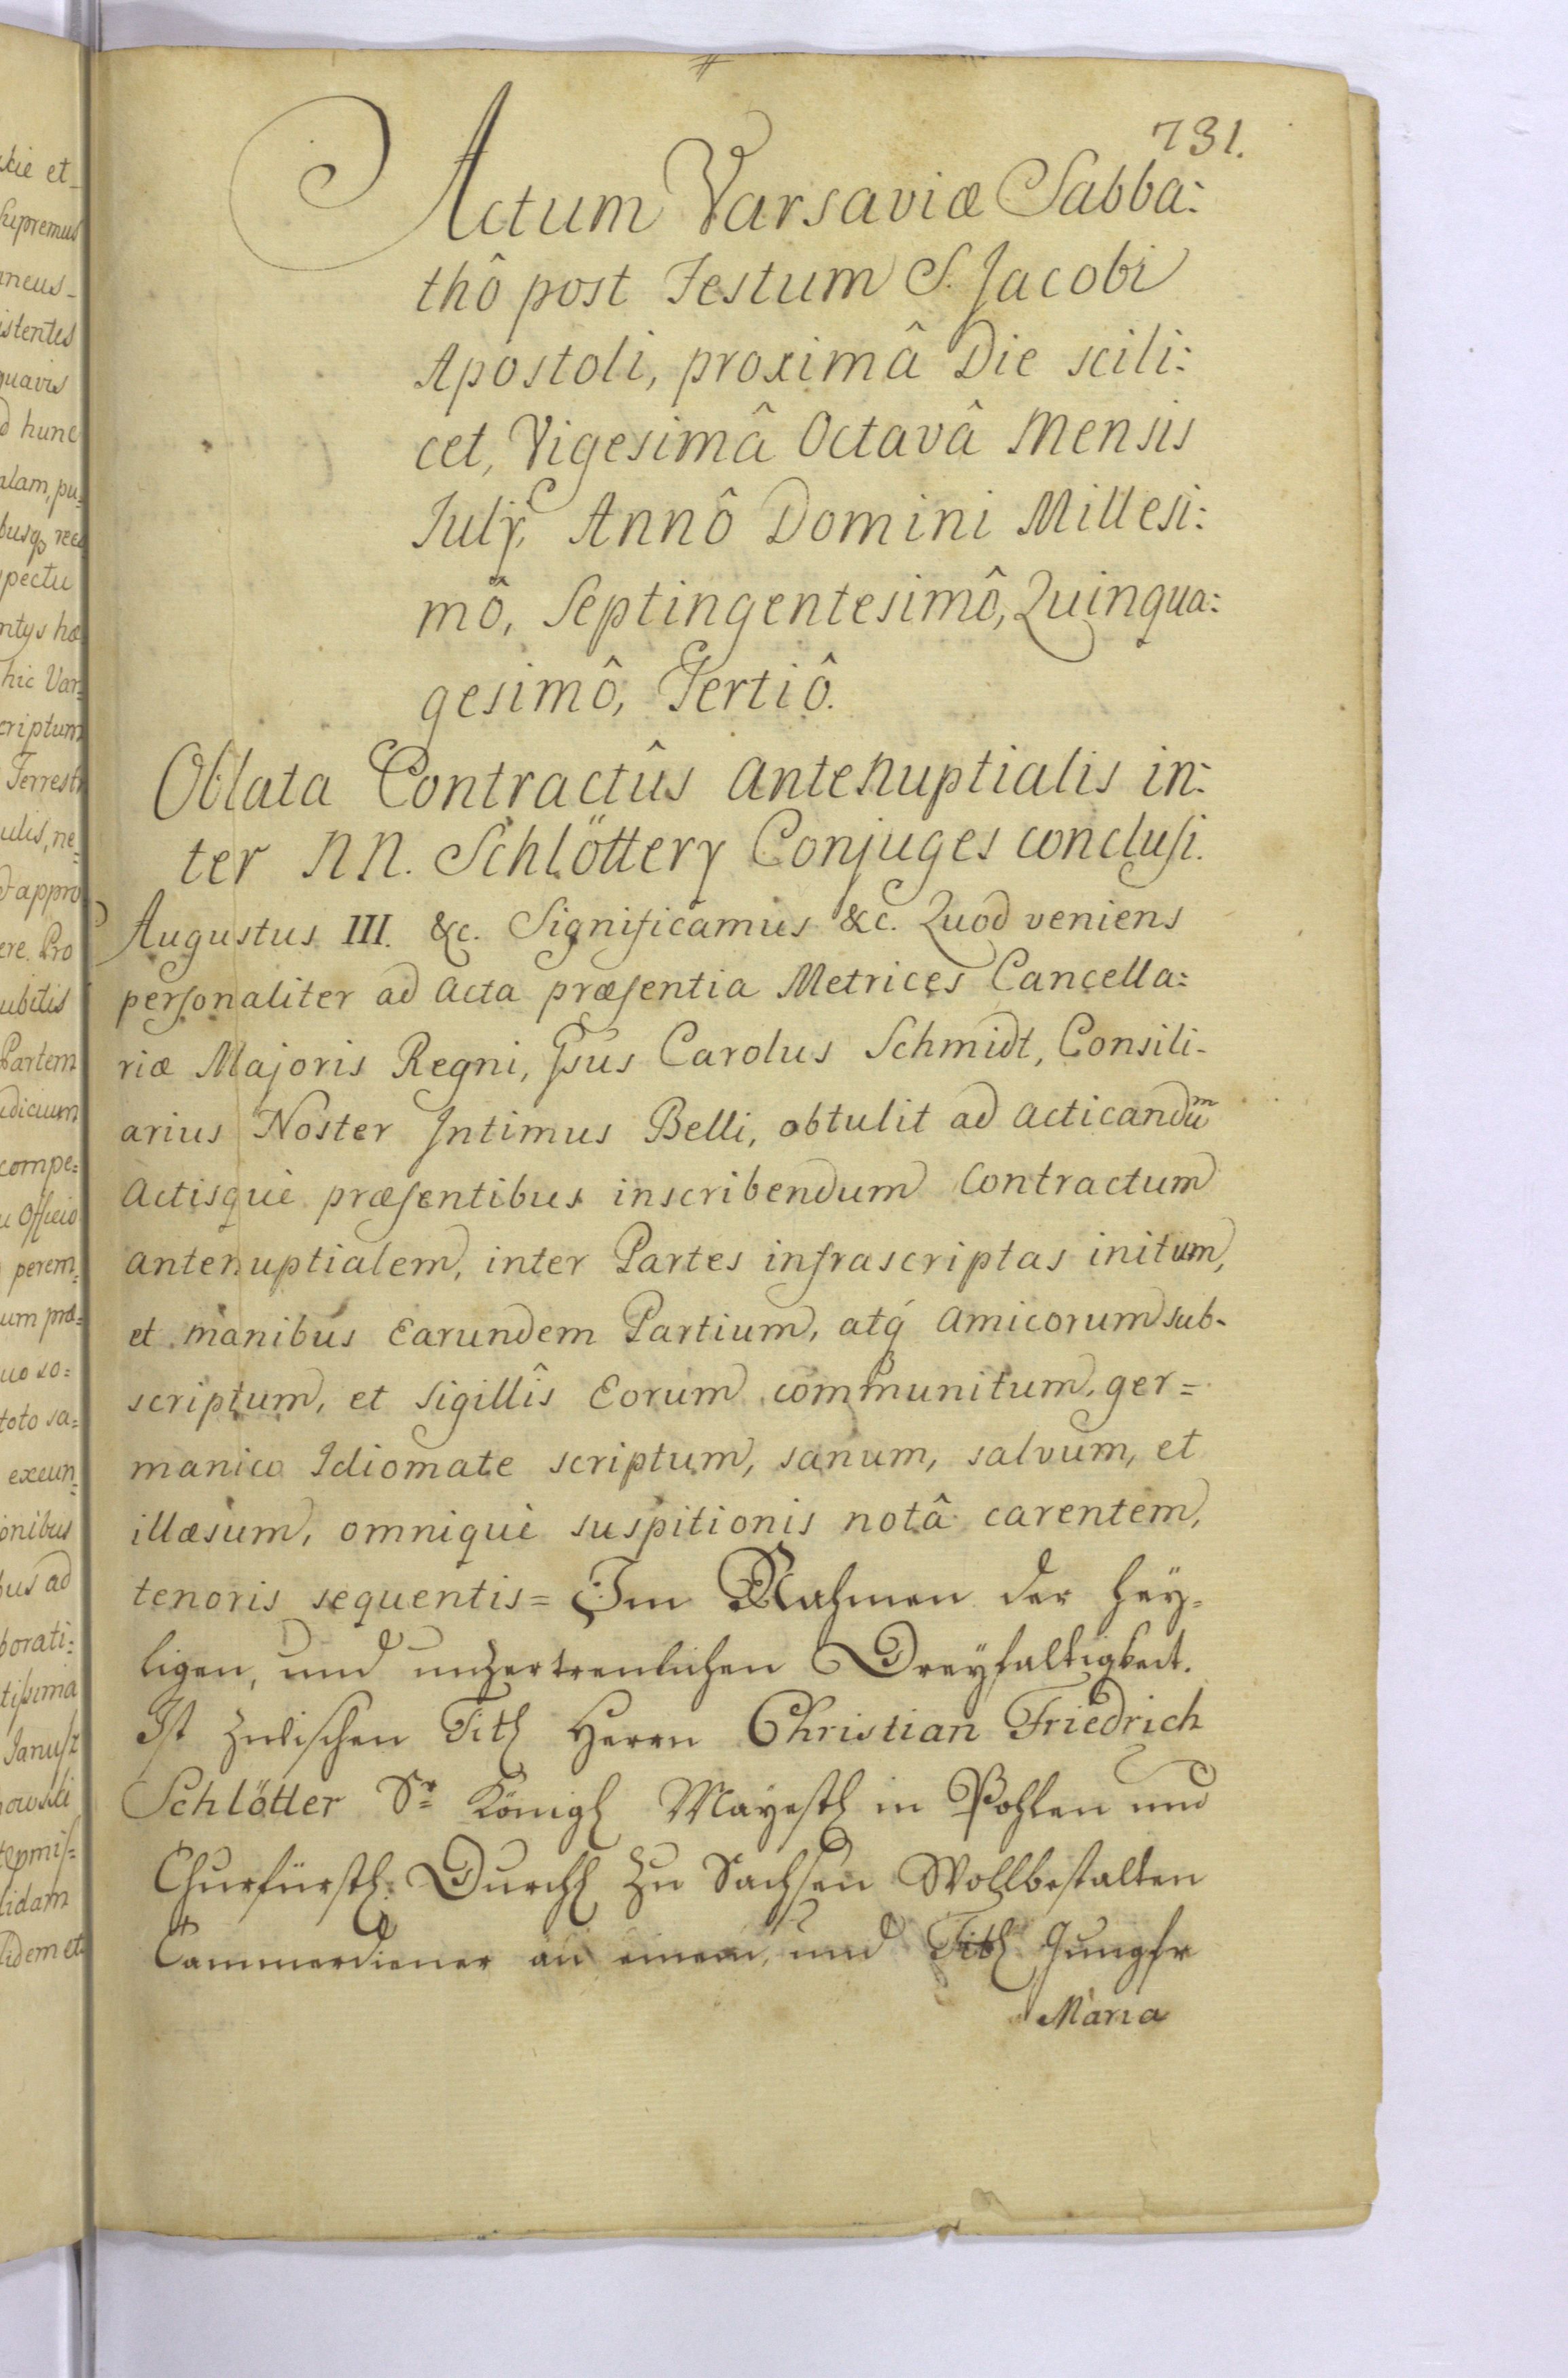 kie et
supremus
aneus
istentes
quavis
d hunc
alam, pu:
busq, rec
pectu
ntÿs hæ
hic Var:
criptum
Terrest
ulis, ne=
d appro
ere. Pro
ubitis
Partem
dicium
compe:
u Officio
perem=
um præ=
uo so=
toto sa=
exeun=
onibus
bus ad
borati:
tißima
Janusz
howski
tepmis=
lidam
Videm et
731.
Actum Varsaviæ Sabba:
thô post Festum S. Jacobi
Apostoli, proximâ Die scili:
cet, Vigesimâ Octavâ Mensis
Julÿ, Annô Domini Millesi:
mô, Septingentesimô, Quinqua:
gesimô, Tertiô.
Oblata Contractûs antenuptialis in:
ter NN. Schlöttery Conjuges conclusi.
Augustus III. &c. Significamus &c. Quod veniens
personaliter ad Acta præsentia Metrices Cancella:
riæ Majoris Regni, Gsus Carolus Schmidt, Consili-
arius Noster Intimus Belli, obtulit ad acticandũm
Actisque præsentibus inscribendum Contractum
antenuptialem, inter Partes infrascriptas initum,
et manibus Earundem Partium, atq́ Amicorum sub-
scriptum, et sigillîs Eorum communitum, ger=
manico Idiomate scriptum, sanum, salvum, et
illæsum, omnique suspitionis notâ carentem,
tenoris sequentis= Im Nahmen der heÿ-
ligen, und unzertrenlichen Dreÿfaltigkeit.
Ist zwischen Titl Herrn Christian Friedrich
Schlötter Sr Königl Mayestl in Pohlen und
Churfürstl. Durchl zu Sachsen Wollbestalten
Cammerdiener an einem, und Titl Jungfr
Maria